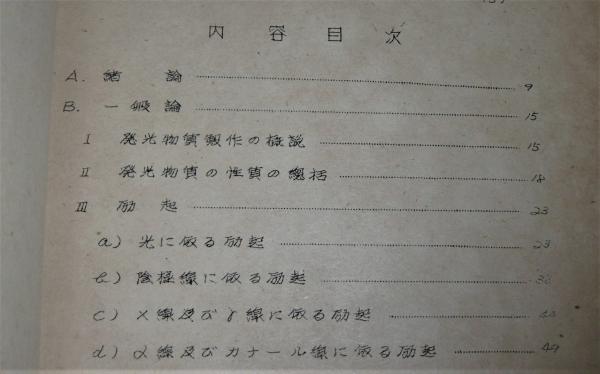 内容目次
A. 緒論 9
B. 一般論 15
I 発光物質製作の概説 15
II 発光物質の性質の総括 18
III 励起 23
a) 光に依る励起 23
b) 陰極線に依る励起
c) X線及びγ線に依る励起 44
d) α線及びカナール線に依る励起 49